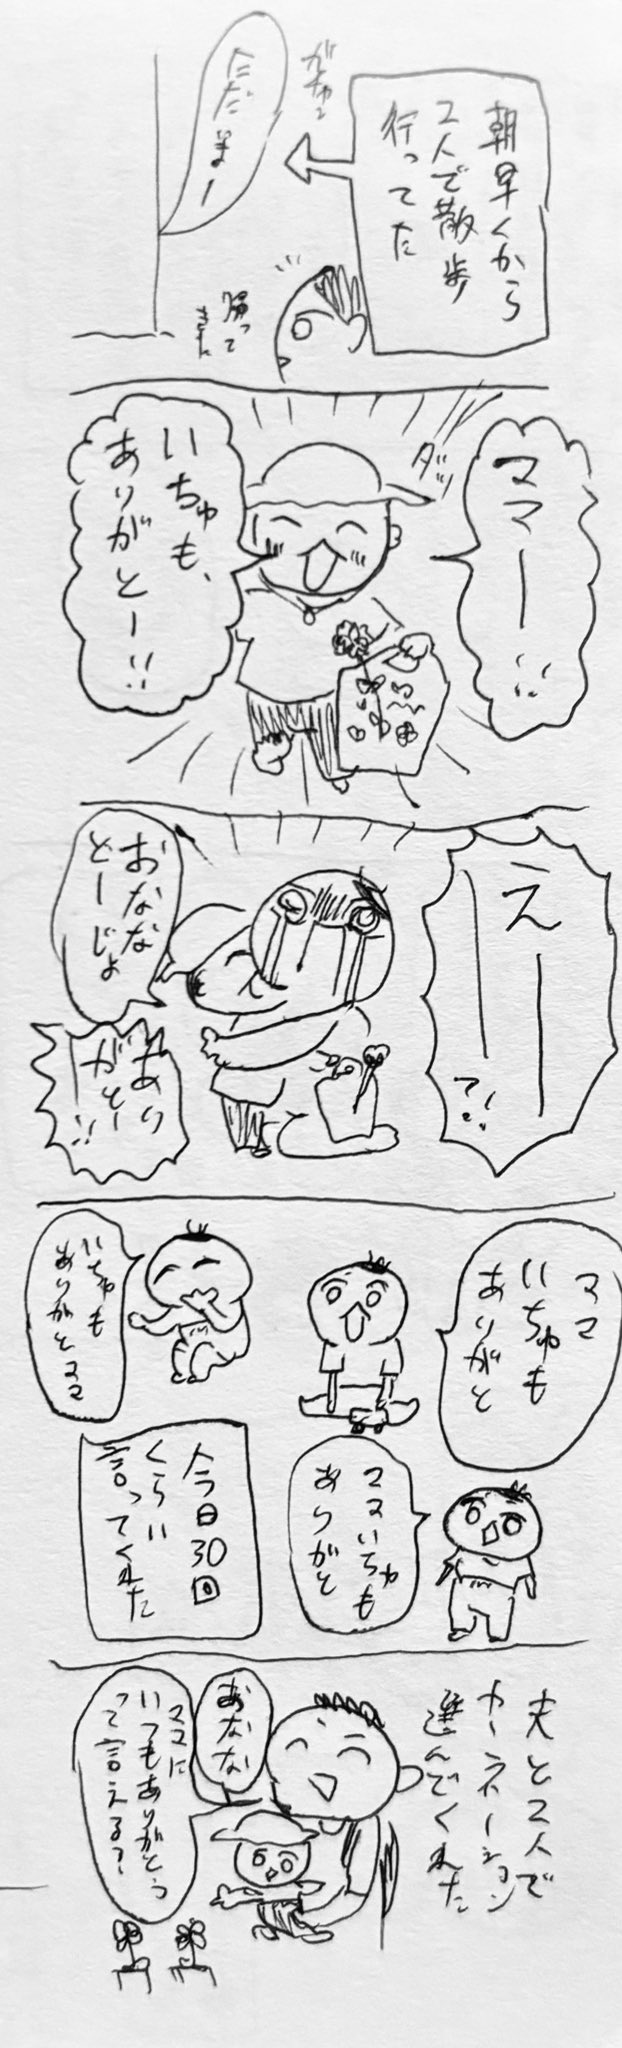 朝早くから
2人で散歩
行ってた
ガチャ
ただいまー
帰って
きた
ママー!!
ダッ
いちゅも、
ありがとー!!
えーー
て!!
おなな
どーじょ
あり
がとー!!
ママ
いちゅも
ありがと
いちゅも
ありがとママ
ママいちゅも
ありがと
今日30回
くらい
言ってくれた
夫と2人で
カーネーション
選んでくれた
おなな
ママに
いつもありがとう
って言える?